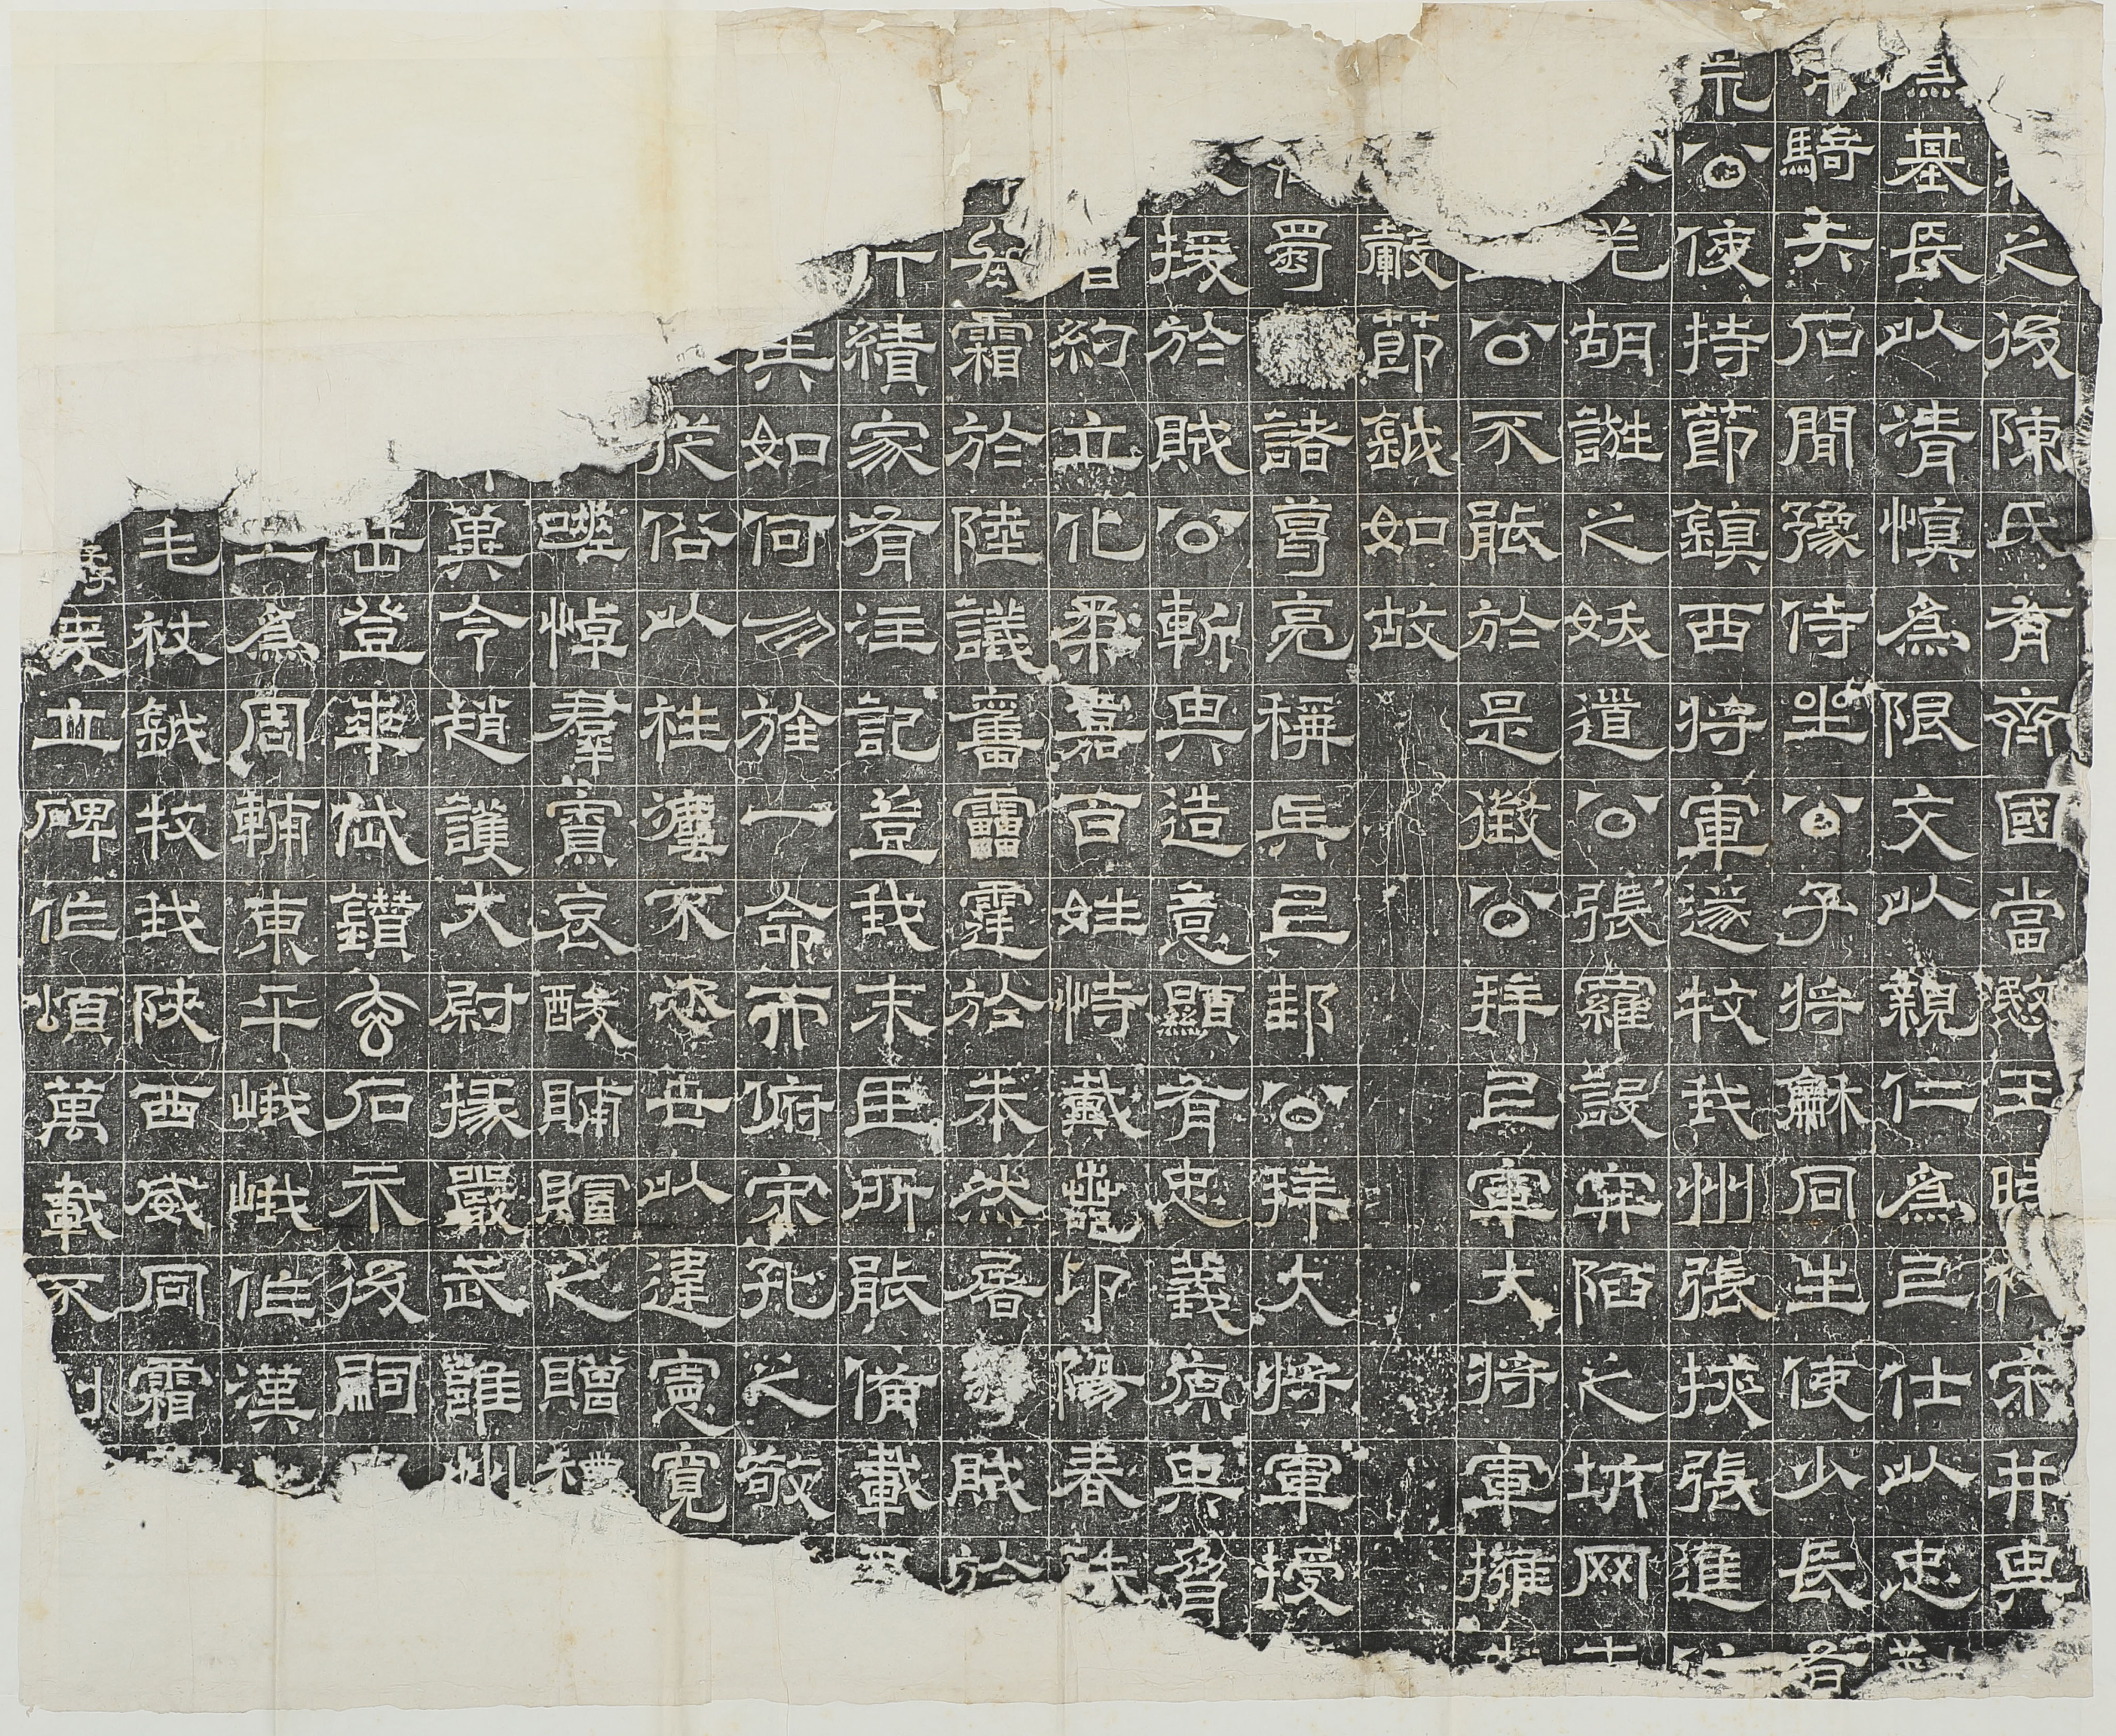 之後陳氏有齊國當愍王時伐宋并其
為基長以清慎為限交以親仁為上仕以忠
騎夫石間豫侍坐公子將龢同生使少長
公使持節鎮西將軍遂牧我州張掖張進
羌胡誑之妖道公張羅設穽陷之坑网
公不能於是徵公拜上軍大將軍擁
轂節鉞如故
蜀諸葛亮稱兵上邽公拜大將軍授
援於賊公斬其造意顯有忠義原其脅
約立化柔嘉百姓恃戴卬陽春
霜於陸議奮雷霆於朱然屠賊於
下績家有注記豈我末臣所能備載
其如何勿旌一命而俯宋孔之敬
俗以不恣世以違憲寬
嗟悼群寮哀酸賻賵之贈禮
冀令趙護大尉掾嚴武雝州
岳登華岱鑽玄石示後嗣
為周輔東平峨峨作漢
毛杖鉞牧我陝西威同霜
立碑作頌萬載不